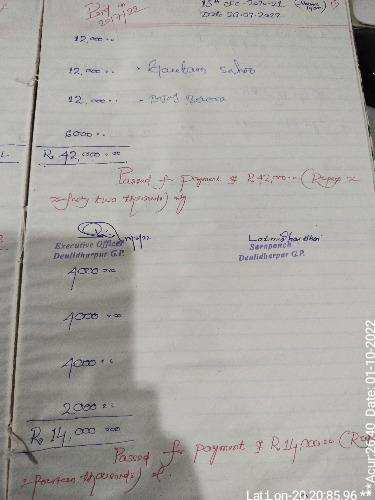 Paid on
20/7/22
15th CFC - 2020-21
Date 20.07.2022
12,000 ..
12,000 .. Gautam Sahoo
12,000 ..
6000 ..
Rs 42,000 = 00
Passed for payment of Rs 42,000 .. (Rupees
forty two thousands) only
Executive Officer
Deulidharpur G.P.
Sarapanch
Deulidharpur G.P.
4000 = 00
4000 = 00
4000 ..
2000 ..
Rs 14,000 = 00
Passed for payment of Rs 14,000 = 00
fourteen thousands)
Lat Lon-20.20:85.96 **Acur:26.40 Date: 01-10-2022